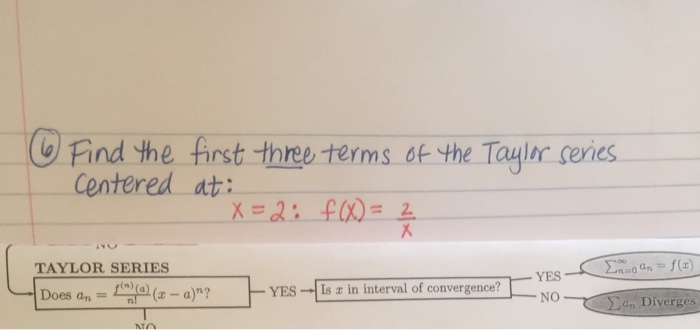 6 Find the first three terms of the Taylor series
centered at:
x = 2: f(x) = 2/x
NO
TAYLOR SERIES
Does aₙ = f⁽ⁿ⁾(a)/n! (x − a)ⁿ?
YES
Is x in interval of convergence?
YES
∑ₙ₌₀^∞ aₙ = f(x)
NO
∑aₙ Diverges
NO